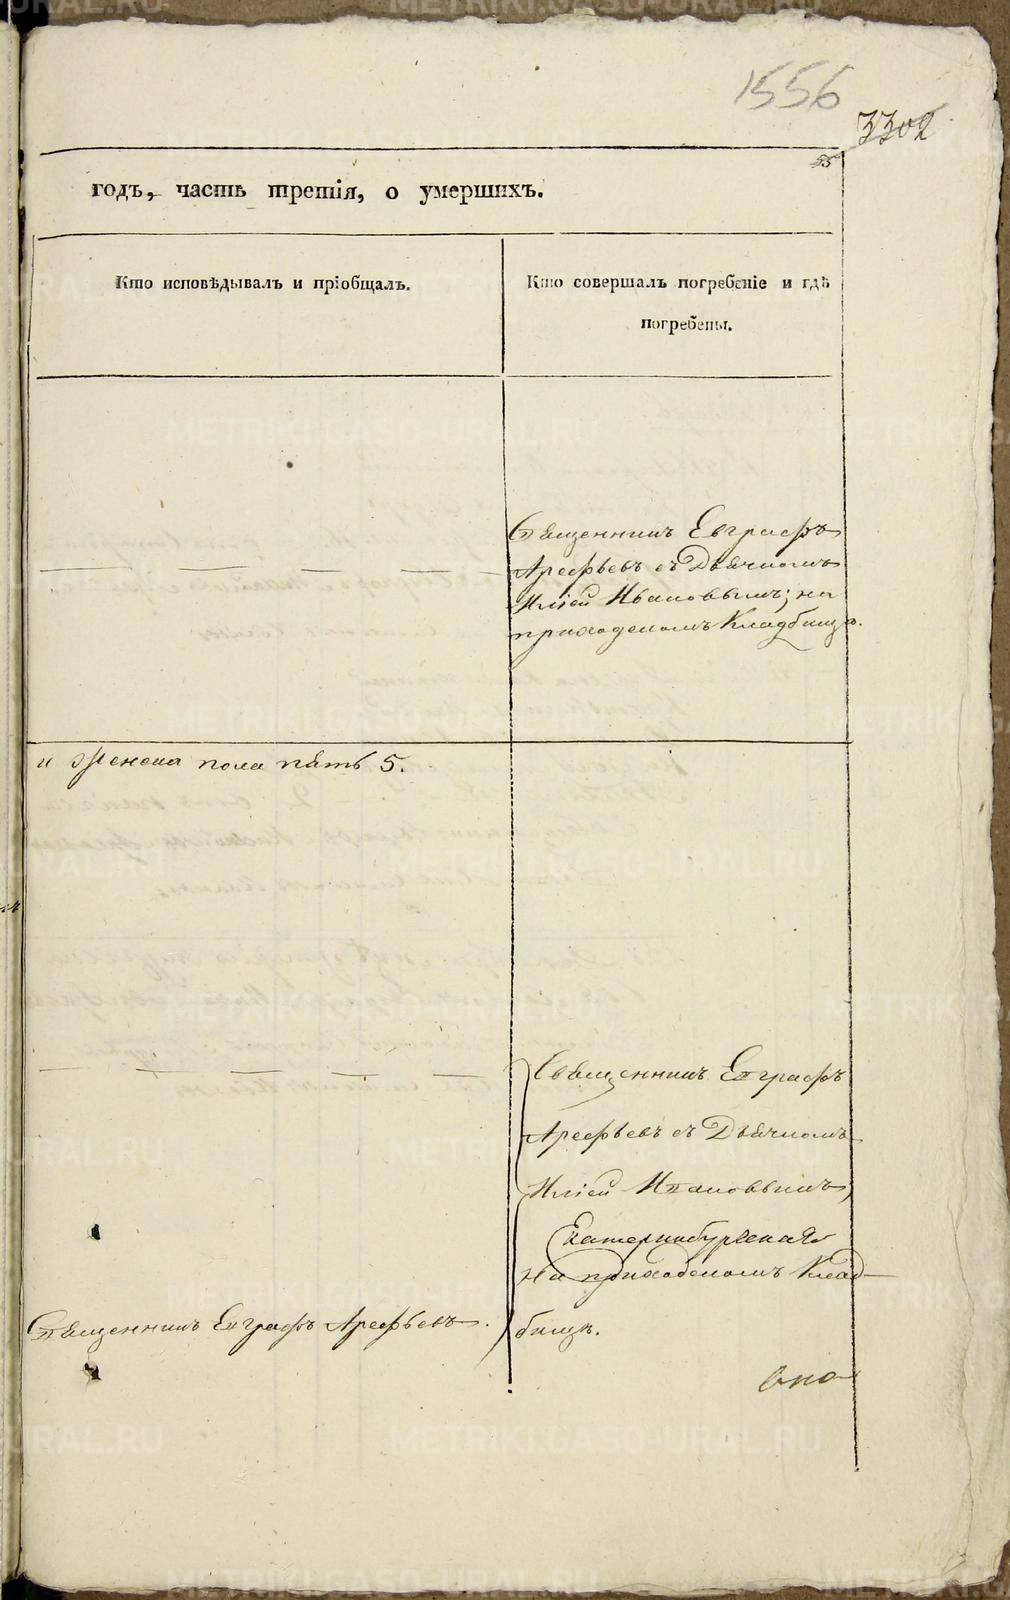 1556
3302
55
годъ, часть третія, о умершихъ.
Кто исповѣдывалъ и пріобщалъ.
Кто совершалъ погребеніе и гдѣ
погребены.
Священникъ Евграфъ
Арефьевъ съ Дьячкомъ
Иліей Ивановымъ; на
приходскомъ Кладбищѣ.
и женска пола пять 5.
Священникъ Евграфъ
Арефьевъ съ Дьячкомъ
Иліей Ивановымъ,
Екатеринбургская
на приходскомъ Клад-
Священникъ Евграфъ Арефьевъ.
бищѣ.
METRIKI.GASO-URAL.RU